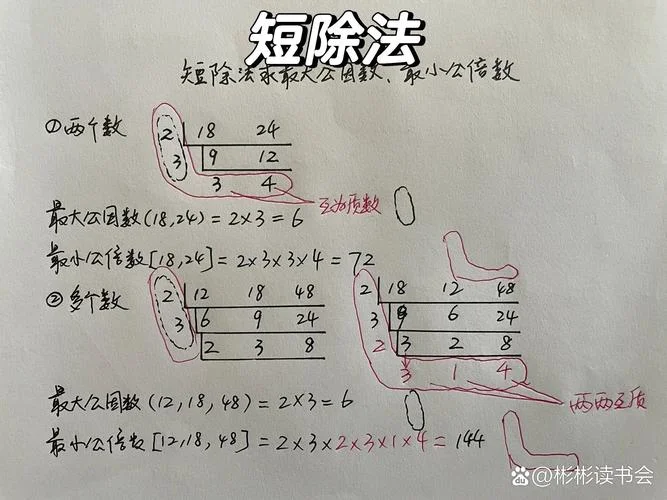 短除法
短除法求最大公因数、最小公倍数
①两个数
2 18 24
3 9 12
3 4
互为质数
最大公因数(18,24)=2×3=6
最小公倍数[18,24]=2×3×3×4=72
②多个数
2 12 18 48
3 6 9 24
2 3 8
2 18 12 48
3 9 6 24
2 3 2 8
3 1 4
两两互质
最大公因数(12,18,48)=2×3=6
最小公倍数[12,18,48]=2×3×2×3×1×4=144
@彬彬读书会